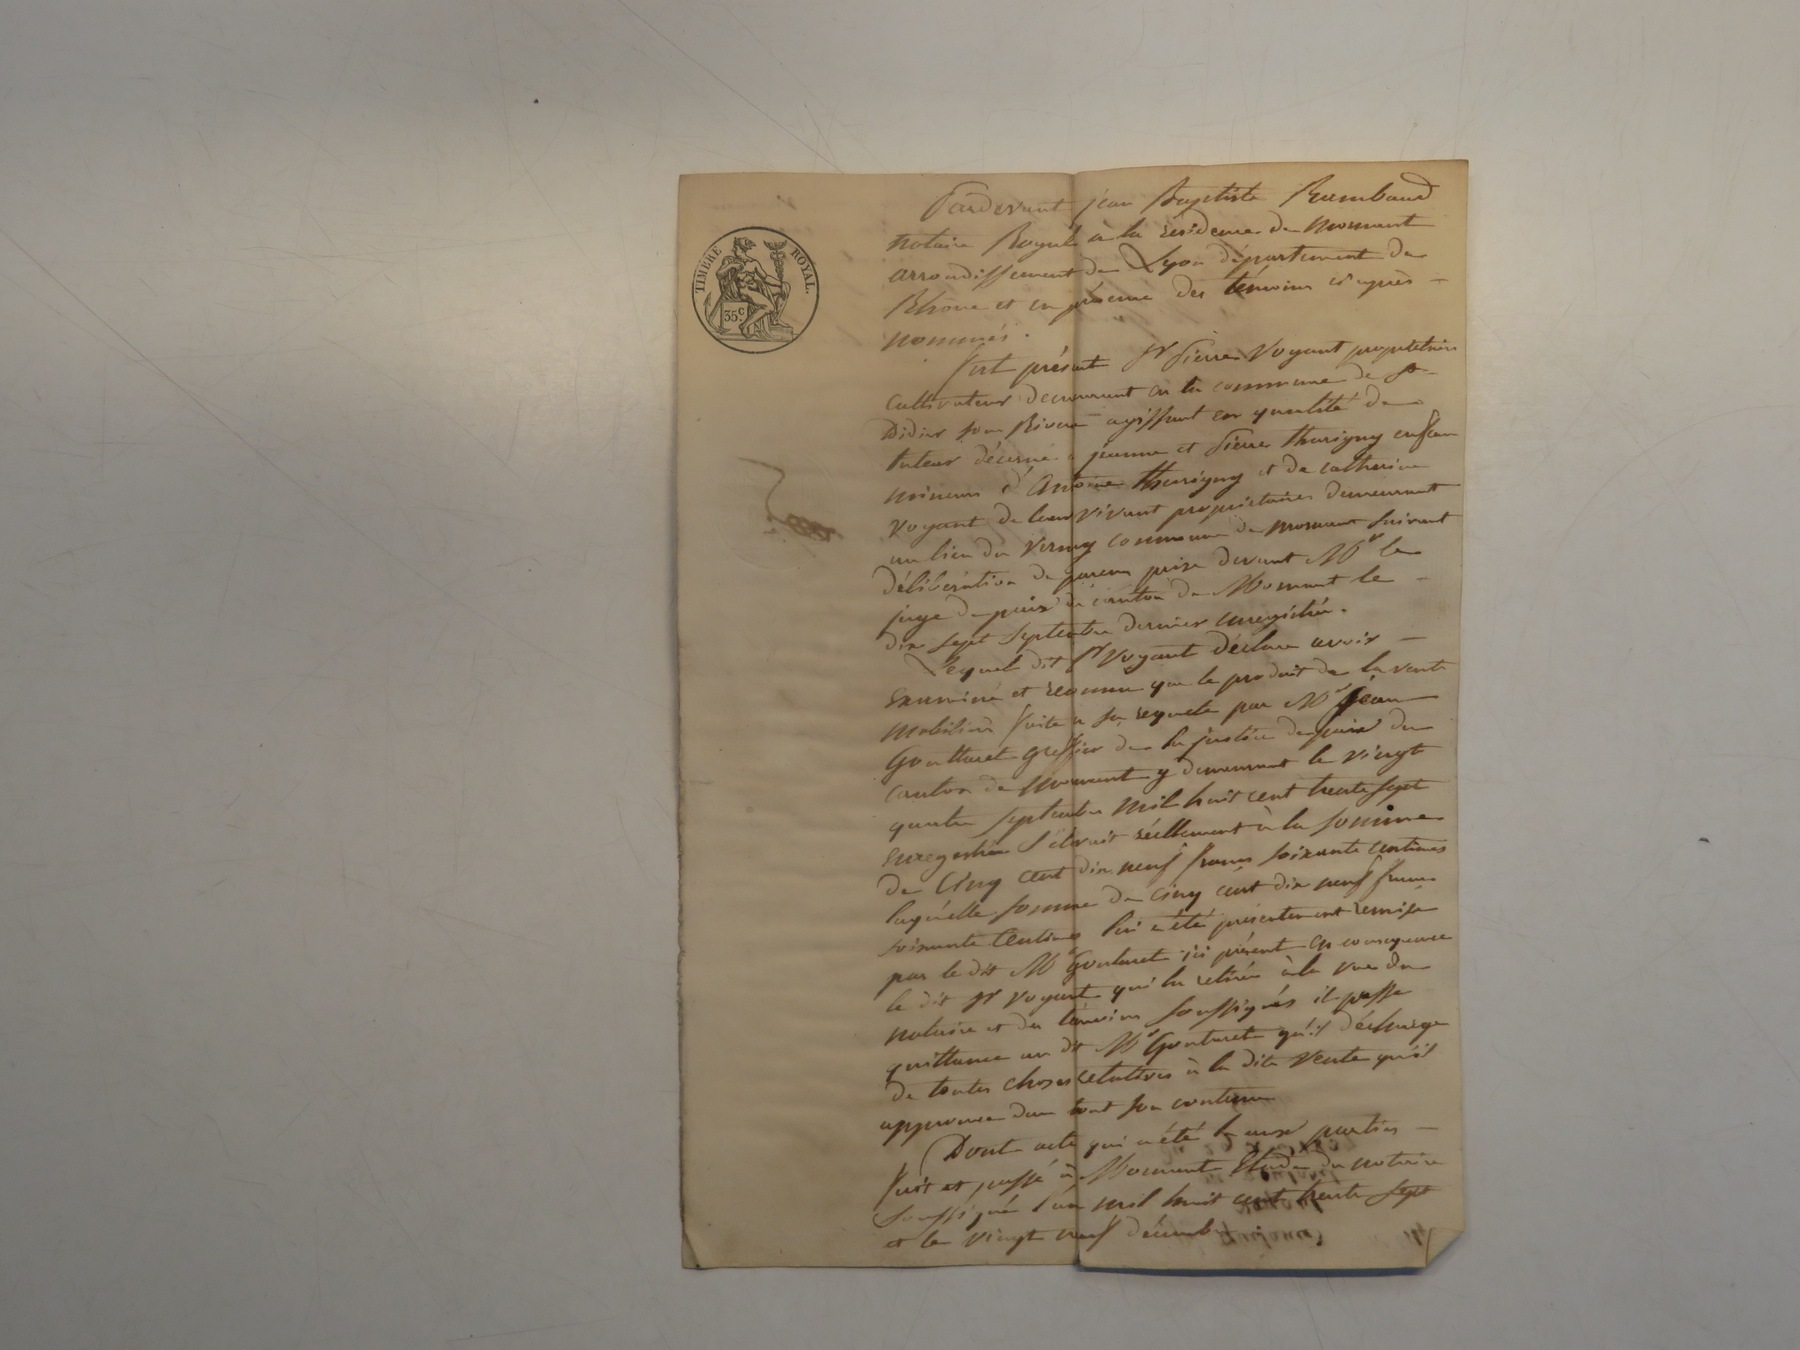 TIMBRE ROYAL.
35c
Pardevant jean Baptiste Rambaud
notaire Royal à la résidence de Mornant
arrondissement de Lyon département du
Rhône et en présence des témoins ci après
nommés.
fut présent Sr Pierre Voyant propriétaire
cultivateur demeurant en la commune de St
Didier sous Riverie agissant en qualité de
tuteur décerné à jeanne et Pierre thurigny enfans
mineurs d'Antoine thurigny et de catherine
voyant de leur vivant propriétaires demeurant
au lieu du commune de mornant suivant
délibération de parens prise devant Mr le
juge de paix du canton de Mornant le
dix sept septembre dernier enregistrée.
Lequel dit Sr Voyant déclare avoir
examiné et reconnu que le produit de la vente
mobilière faite à sa requete par Mr jean
Goutturet greffier de la justice de paix du
canton de Mornant y demeurant le vingt
quatre septembre mil huit cent trente sept
enregistrée s'élevait réellement à la somme
de cinq cent dix neuf francs soixante centimes
laquelle somme de cinq cent dix neuf francs
soixante centimes lui a été présentement remise
par le dit Me Goutturet ici présent en conséquence
le dit Sr voyant qui la retirée à la vue du
notaire et des témoins soussignés il passe
quittance au dit Me Goutturet qu'il décharge
de toutes choses relatives à la dite vente qu'il
approuve dans tout son contenu
Dont acte qui a été lu aux parties
fait et passé à Mornant Etude du notaire
soussigné l'an mil huit cent trente sept
et le vingt neuf décembre